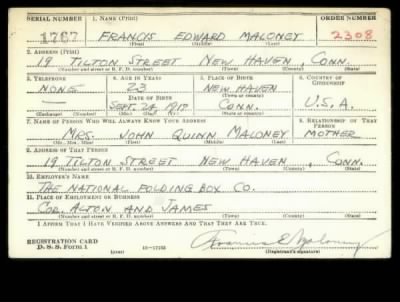 SERIAL NUMBER 1. NAME (Print) ORDER NUMBER
1767 FRANCIS EDWARD MALONEY 2308
(First) (Middle) (Last)
2. ADDRESS (Print)
19 TILTON STREET NEW HAVEN, CONN.
(Number and street or R. F. D. number) (Town) (County) (State)
3. TELEPHONE 4. AGE IN YEARS 5. PLACE OF BIRTH 6. COUNTRY OF CITIZENSHIP
NONE 23 NEW HAVEN
DATE OF BIRTH (Town or county)
— SEPT. 29, 1917 CONN. U.S.A.
(Exchange) (Number) (Mo.) (Day) (Yr.) (State or country)
7. NAME OF PERSON WHO WILL ALWAYS KNOW YOUR ADDRESS 8. RELATIONSHIP OF THAT PERSON
MRS. JOHN QUINN MALONEY MOTHER
(Mr., Mrs., Miss) (First) (Middle) (Last)
9. ADDRESS OF THAT PERSON
19 TILTON STREET NEW HAVEN, CONN.
(Number and street or R. F. D. number) (Town) (County) (State)
10. EMPLOYER'S NAME
THE NATIONAL FOLDING BOX CO.
11. PLACE OF EMPLOYMENT OR BUSINESS
COR. ALTON AND JAMES
(Number and street or R. F. D. number) (Town) (County) (State)
I AFFIRM THAT I HAVE VERIFIED ABOVE ANSWERS AND THAT THEY ARE TRUE.
REGISTRATION CARD
D. S. S. Form 1 (over) 16—17105 Francis E. Maloney
(Registrant's signature)